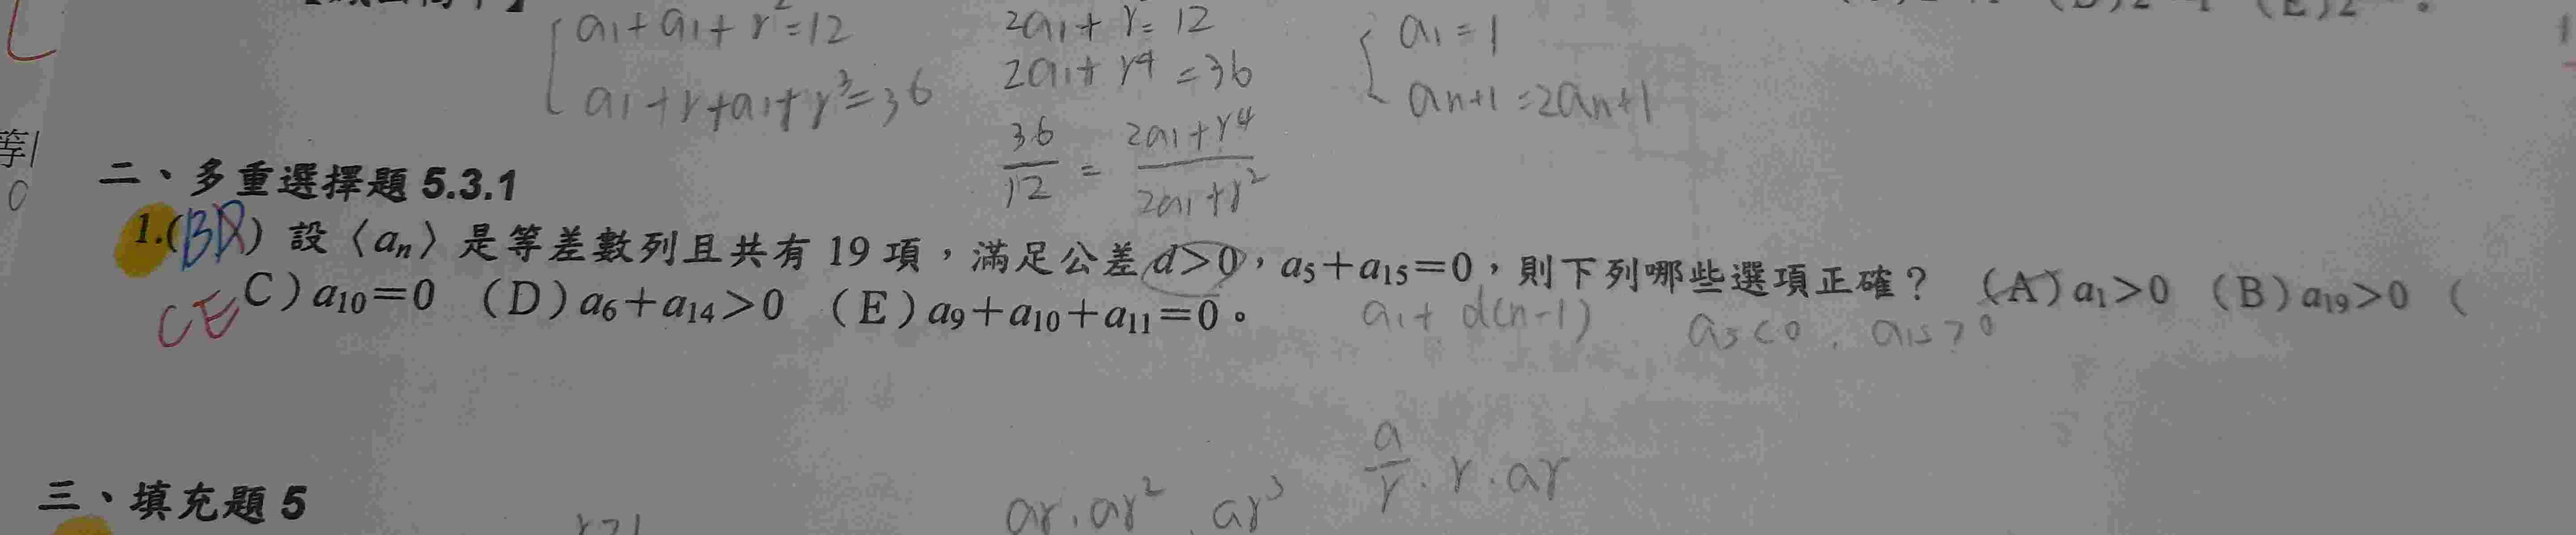 a₁+a₁+r²=12
a₁+r+a₁+r³=36
2a₁+r=12
2a₁+r⁴=36
36/12 = 2a₁+r⁴/2a₁+r²
a₁=1
aₙ₊₁=2aₙ+1
二、多重選擇題 5.3.1
1.(BD) 設〈aₙ〉是等差數列且共有 19 項，滿足公差 d>0，a₅+a₁₅=0，則下列哪些選項正確？ (A) a₁>0 (B) a₁₉>0 (
CE
C) a₁₀=0 (D) a₆+a₁₄>0 (E) a₉+a₁₀+a₁₁=0。
a₁+d(n-1)
a₅<0, a₁₅>0
a/r . r . ar
三、填充題 5
ar, ar², ar³